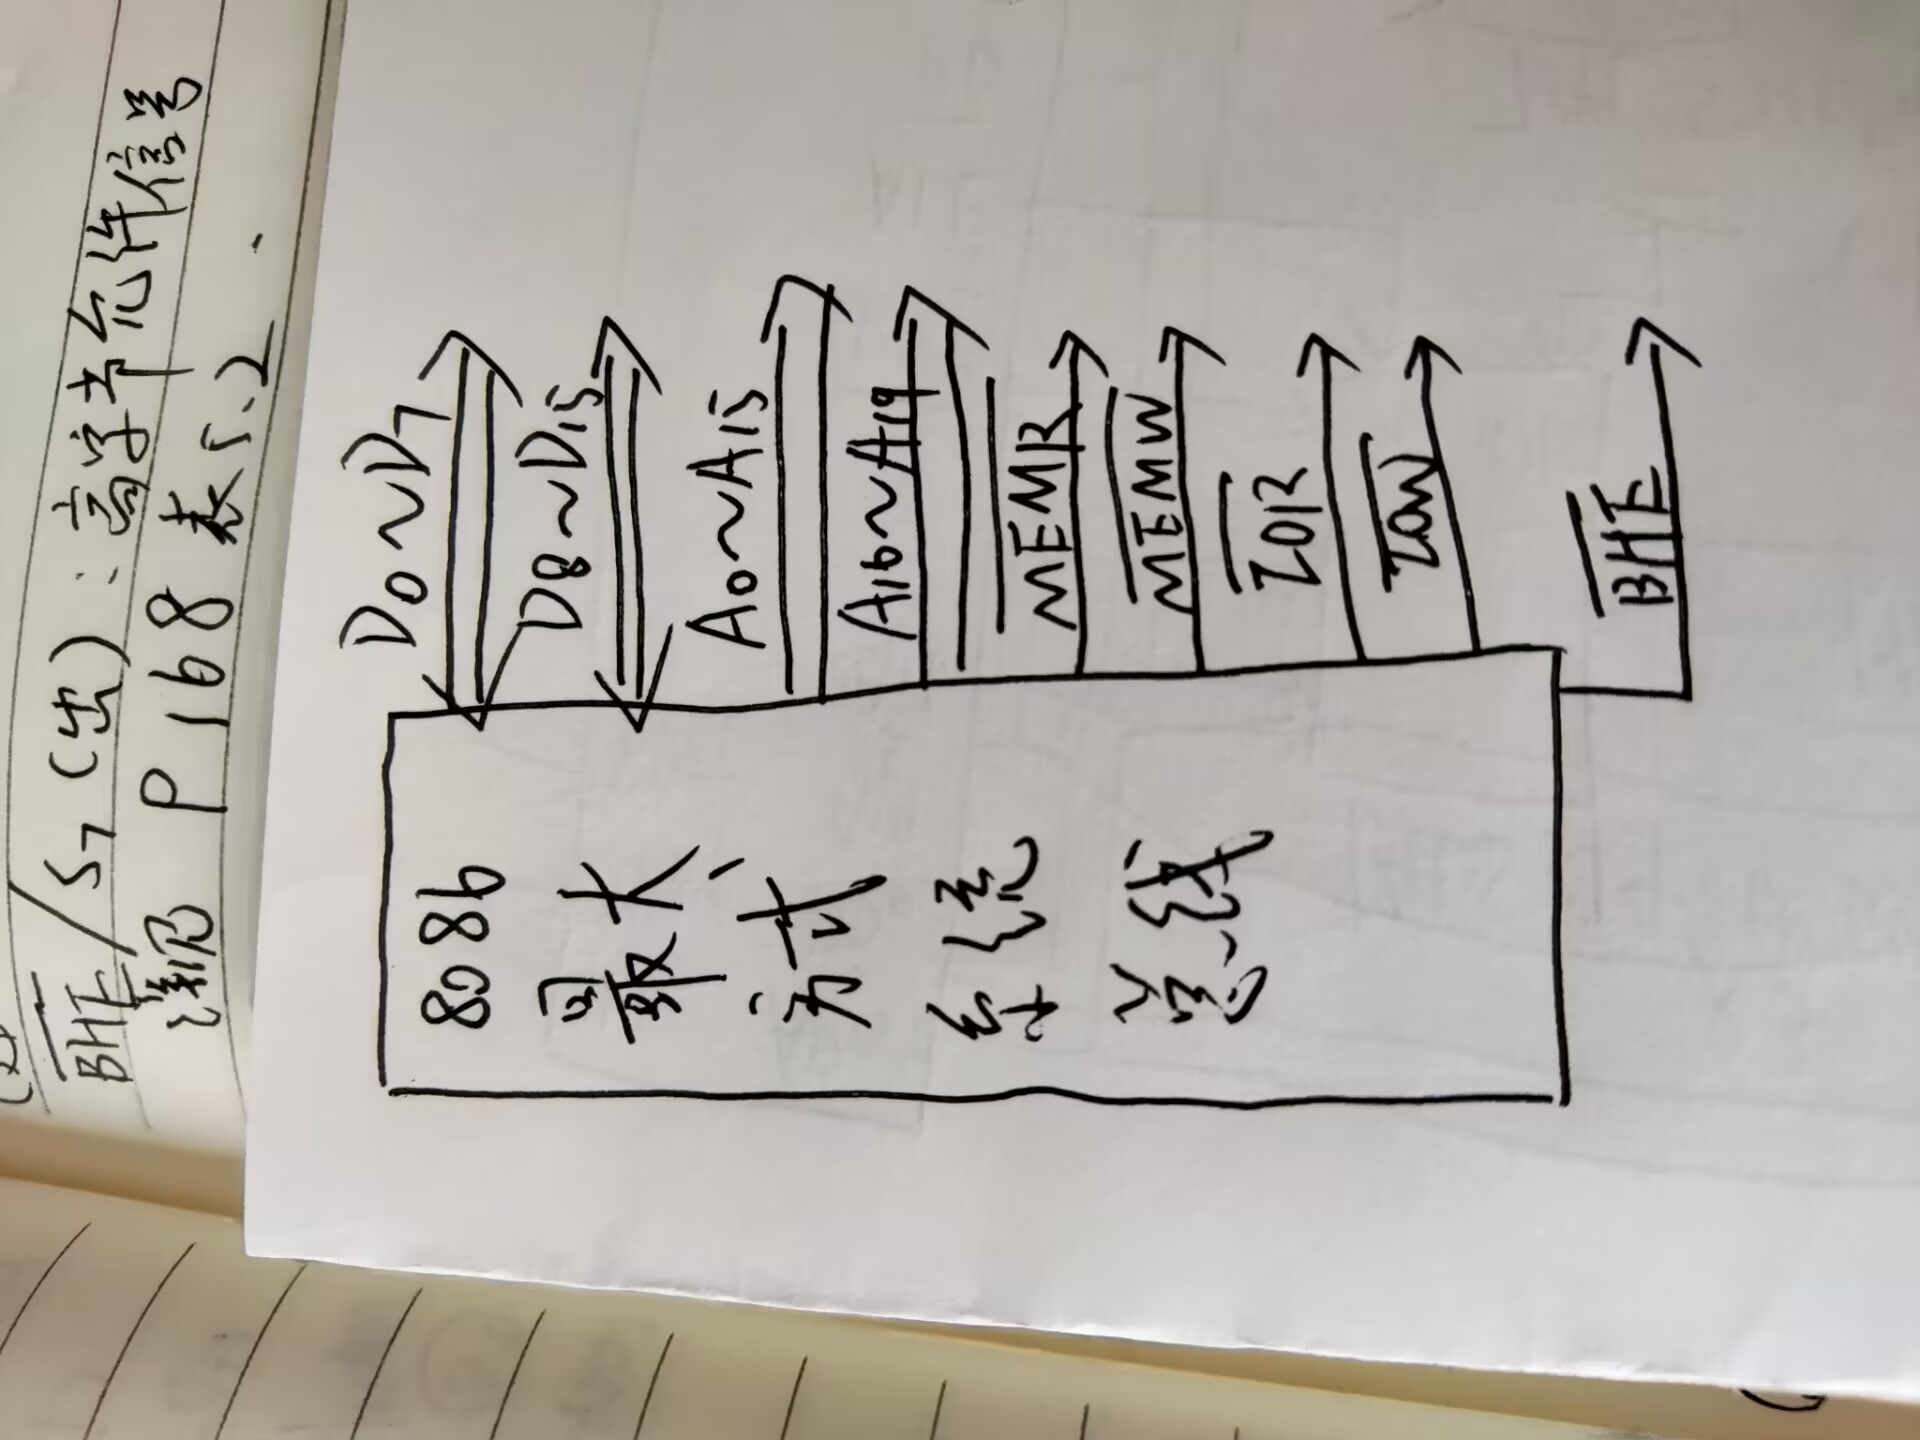 BHE/S7(出):高字节允许信号
详见 P168 表5.2.
8086
最大
方式
系统
总线
D0~D7
D8~D15
A0~A15
A16~A19
MEMR
MEMW
IOR
IOW
BHE